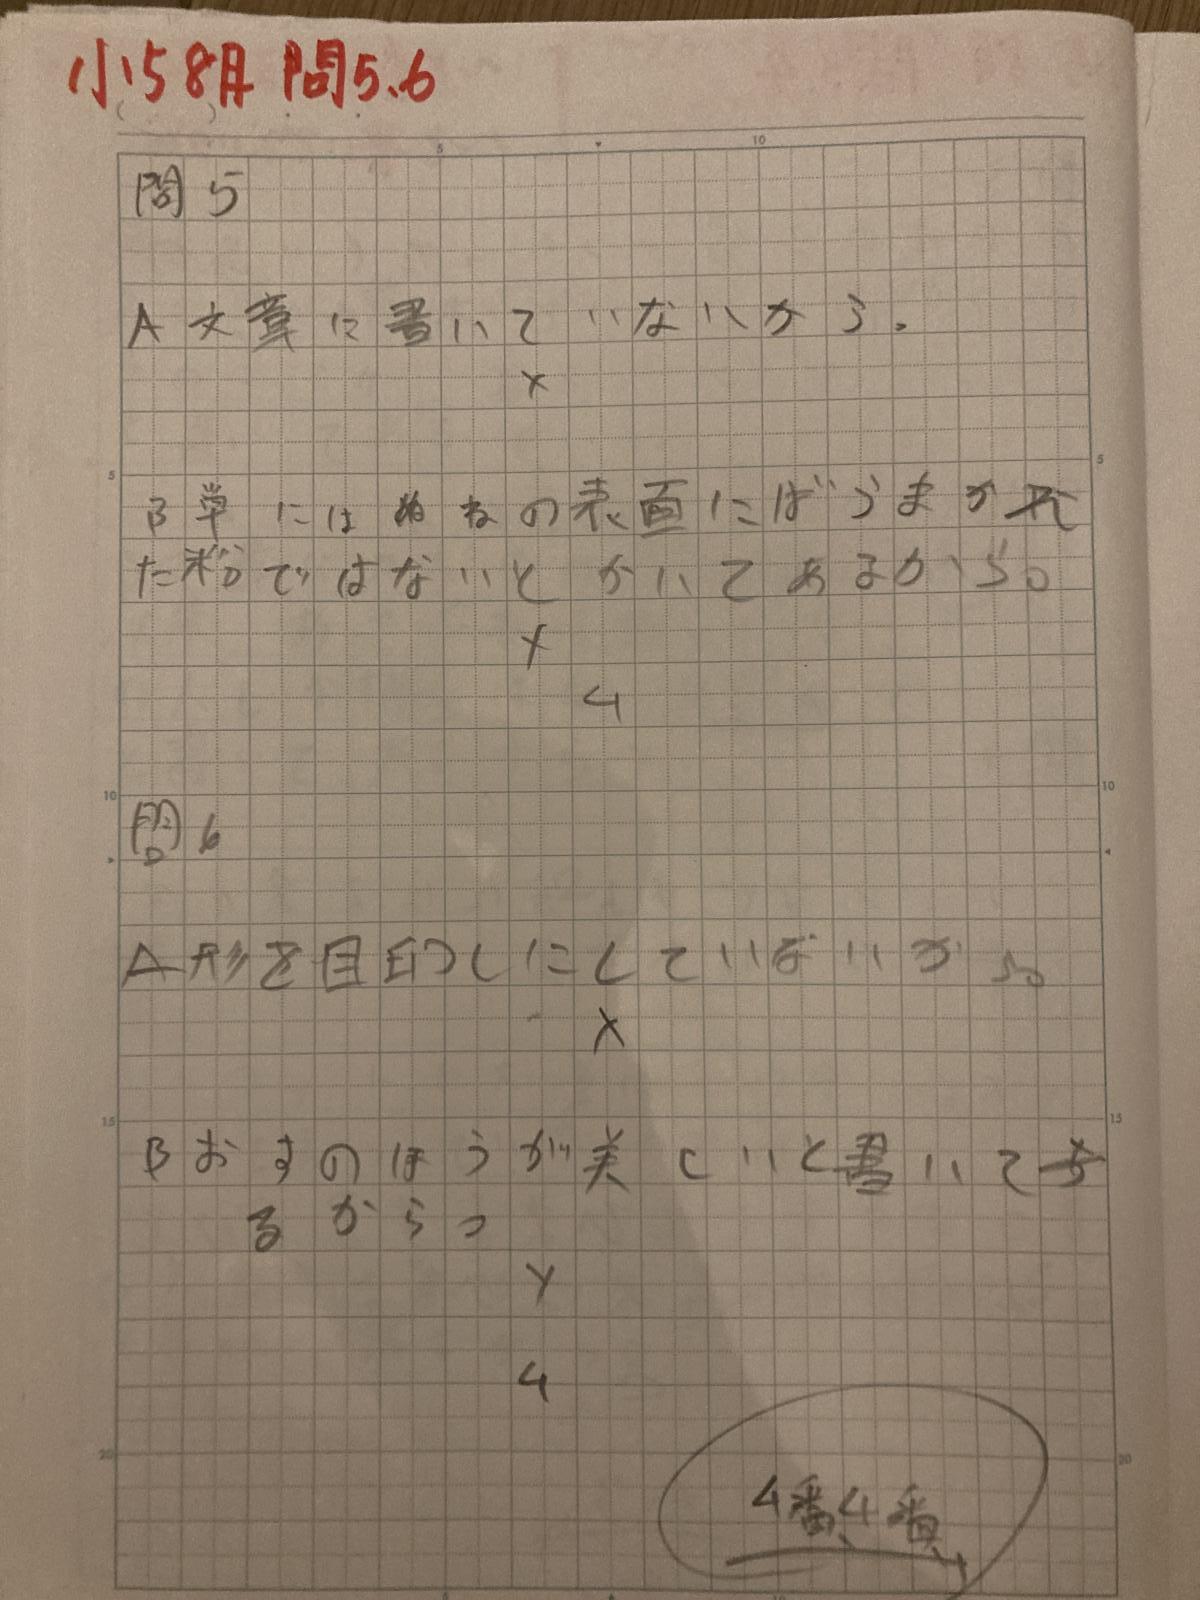 小5 8月 問5.6
問5
A文章に書いていないから。
×
B単にはねの表面にばらまかれ
た粉ではないとかいてあるから。
×
4
問6
A形を目印しにしていないから。
×
Bおすのほうが美しいと書いてあ
るから。
×
4
4番、4番、